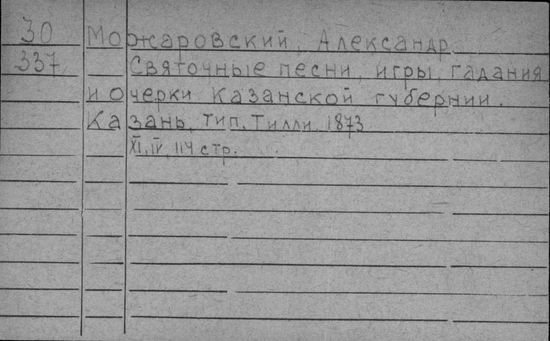 30 Можаровский, Александр.
337 Святочные песни, игры, гадания
и очерки Казанской губернии.
Казань, тип. Тилли, 1873
XI, IV, 114 стр.